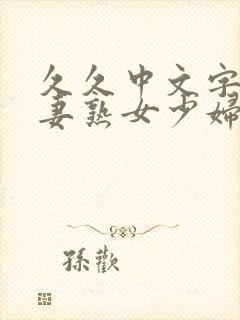 久久中文字
妻熟女少婦
孫歡